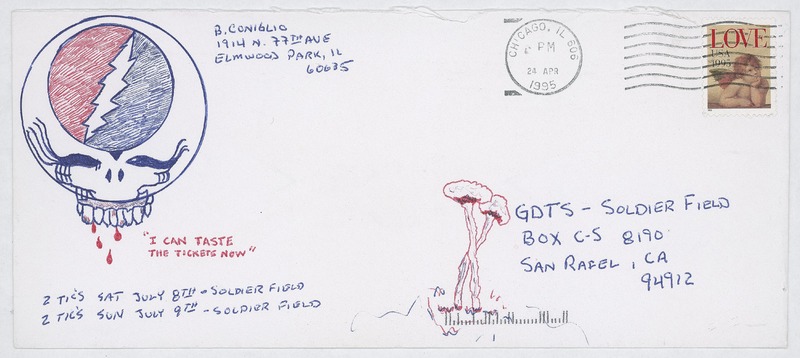 B. CONIGLIO
1914 N. 77TH AVE
ELMWOOD PARK, IL
60635
CHICAGO, IL 606
PM
24 APR
1995
LOVE
USA
1995
"I CAN TASTE
THE TICKETS NOW"
GDTS - SOLDIER FIELD
BOX C-S 8190
SAN RAFEL, CA
94912
2 TIC'S SAT JULY 8TH - SOLDIER FIELD
2 TIC'S SUN JULY 9TH - SOLDIER FIELD